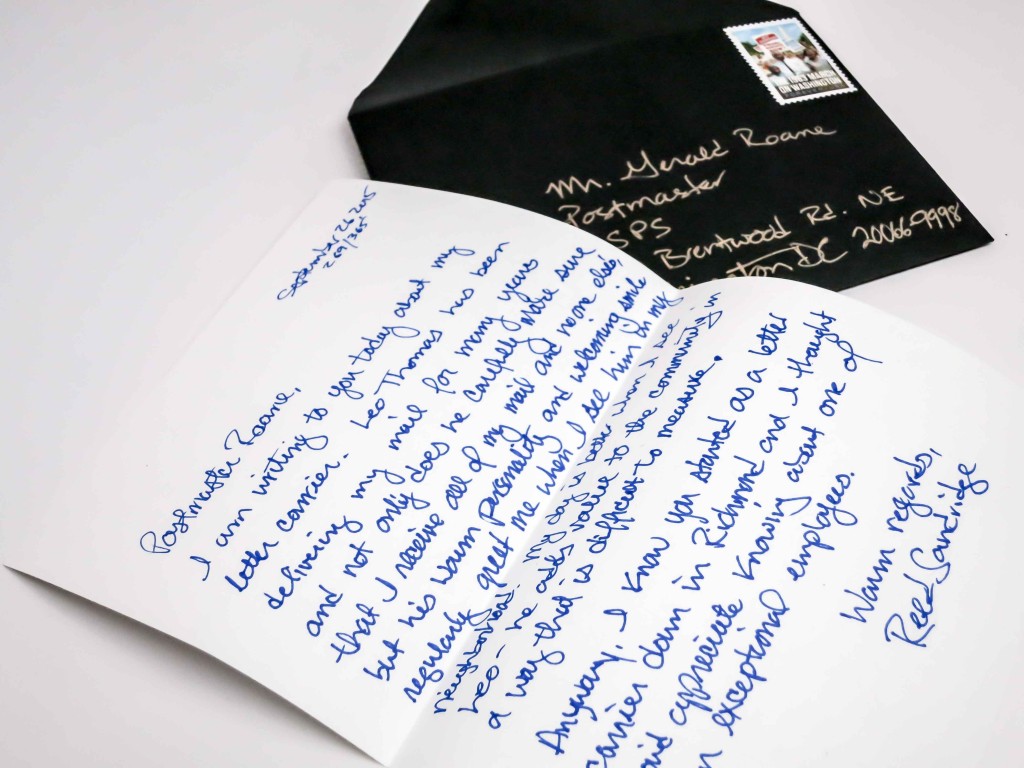 1963 MARCH
ON WASHINGTON
Mr. Gerald Roane
Postmaster
SPS
Brentwood Rd. NE
ington DC 20066-9998
September 26 2015
269/365
Postmaster Roane,
I am writing to you today about my
letter carrier. Leo Thomas has been
delivering my mail for many years
and not only does he carefully make sure
that I receive all of my mail and no one else's,
but his warm personality and welcoming smile
regularly great me when I see him in my
neighborhood. My day is better when I see
Leo - he adds value to the community in
a way that is difficult to measure.
Anyway, I know you started as a letter
carrier down in Richmond and I thought
uld appreciate knowing about one of
n exceptional employees.
Warm regards,
Reed Sandridge